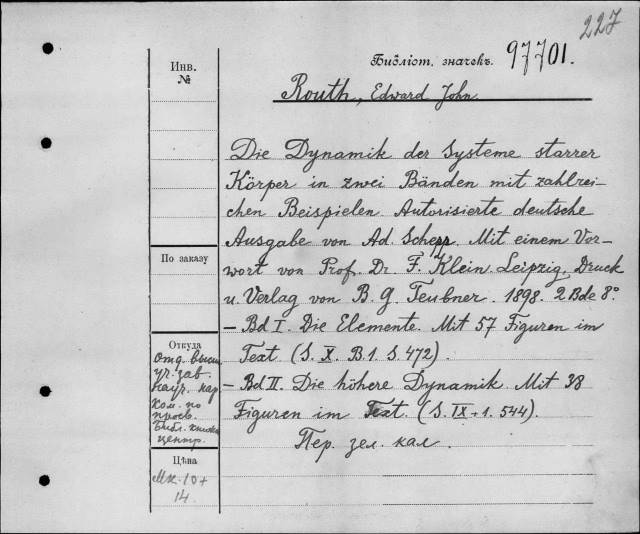 227
Библіот. значекъ. 97701.
Инв.
№
Routh, Edward John.
Die Dynamik der Systeme starrer
Körper in zwei Bänden mit zahlrei-
chen Beispielen. Autorisierte deutsche
Ausgabe von Ad. Schepp. Mit einem Vor-
wort von Prof. Dr. F. Klein. Leipzig, Druck
u. Verlag von B. G. Teubner. 1898. 2 Bde 8°.
— Bd I. Die Elemente. Mit 57 Figuren im
Text (S. X. B 1. S. 472).
— Bd II. Die höhere Dynamik. Mit 38
Figuren im Text. (S. IX + 1. 544).
Пер. зел. кал.
По заказу
Откуда
Отд. высш.
уч. зав.
науч. нар.
ком. по
просв.
Библ. книжн.
центр.
Цѣна
Мк. 10 +
14.